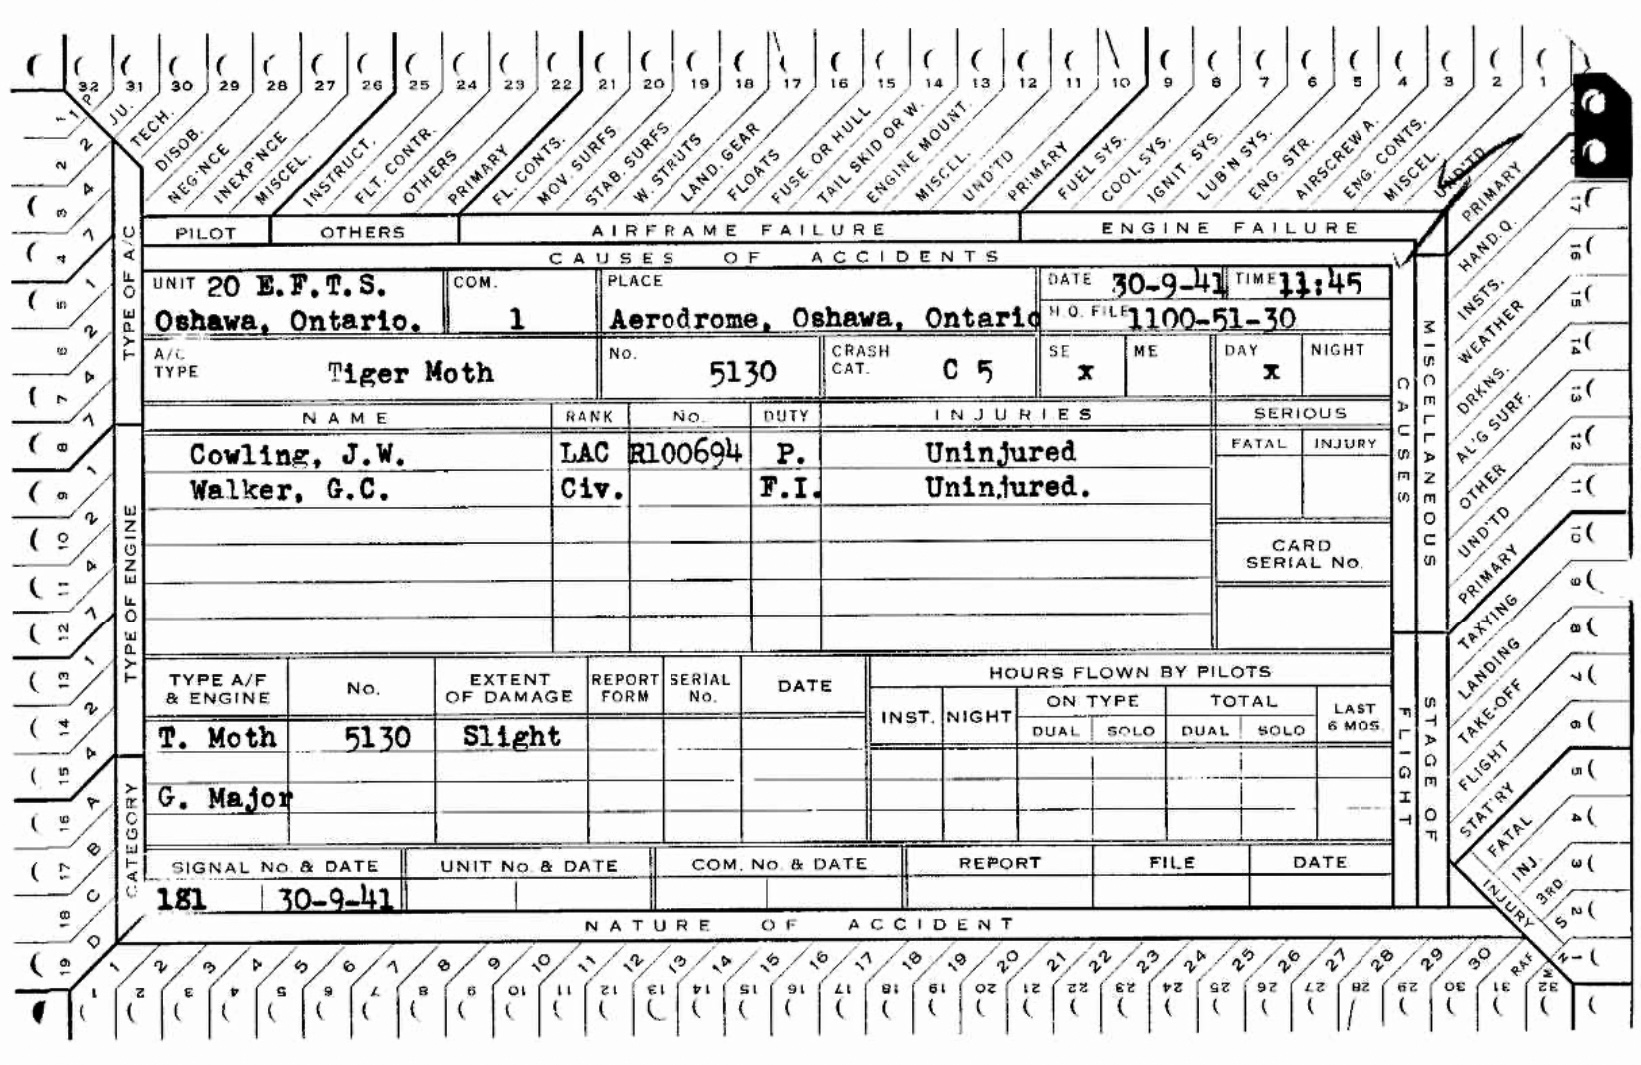 32 31 30 29 28 27 26 25 24 23 22 21 20 19 18 17 16 15 14 13 12 11 10 9 8 7 6 5 4 3 2 1
JU. TECH. DISOB. NEG'NCE INEXP'NCE MISCEL. INSTRUCT. FLT. CONTR. OTHERS PRIMARY FL. CONTS. MOV. SURFS. STAB. SURFS W. STRUTS LAND. GEAR FLOATS FUSE. OR HULL TAIL SKID OR W. ENGINE MOUNT. MISCLL. UND'TD PRIMARY FUEL SYS. COOL. SYS. IGNIT. SYS. LUB'N SYS. ENG. STR. AIRSCREW A. ENG. CONTS. MISCEL. UND'TD
PILOT OTHERS AIRFRAME FAILURE ENGINE FAILURE
CAUSES OF ACCIDENTS
UNIT 20 E.F.T.S. COM. PLACE DATE 30-9-41 TIME 11:45
Oshawa, Ontario. 1 Aerodrome, Oshawa, Ontario H.Q. FILE 1100-51-30
A/C TYPE Tiger Moth No. 5130 CRASH CAT. C 5 SE x ME DAY x NIGHT
NAME RANK No. DUTY INJURIES SERIOUS
FATAL INJURY
Cowling, J.W. LAC R100694 P. Uninjured
Walker, G.C. Civ. F.I. Uninjured.
CARD
SERIAL No.
TYPE A/F & ENGINE No. EXTENT OF DAMAGE REPORT FORM SERIAL No. DATE HOURS FLOWN BY PILOTS
INST. NIGHT ON TYPE TOTAL LAST 6 MOS.
DUAL SOLO DUAL SOLO
T. Moth 5130 Slight
G. Major
SIGNAL No. & DATE UNIT No. & DATE COM. No. & DATE REPORT FILE DATE
181 30-9-41
NATURE OF ACCIDENT
1 2 3 4 5 6 7 8 9 10 11 12 13 14 15 16 17 18 19 20 21 22 23 24 25 26 27 28 29 30 RAF
1 2 3 4 5 6 7 8 9 10 11 12 13 14 15 16 17 18 19 20 21 22 23 24 25 26 27 28 29 30 31 32
TYPE OF A/C
TYPE OF ENGINE
CATEGORY
1 2 3 4 5 6 7 8 9 10 11 12 13 14 15 16 17 18 19
1 2 4 7 1 2 4 7 1 2 4 7 1 2 4 A B C D
MISCELLANEOUS
CAUSES
STAGE OF
FLIGHT
PRIMARY
HAND.Q.
INSTS.
WEATHER
DRKNS.
AL'G SURF.
OTHER
UND'TD
PRIMARY
TAXYING
LANDING
TAKE-OFF
FLIGHT
STAT'RY
FATAL
INJ.
3RD.
INJURY
17 16 15 14 13 12 11 10 9 8 7 6 5 4 3 2 1